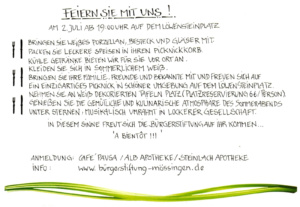 FEIERN SIE MIT UNS!
AM 2. JULI AB 19:00 UHR AUF DEM LÖWENSTEINPLATZ
BRINGEN SIE WEIßES PORZELLAN, BESTECK UND GLÄSER MIT
PACKEN SIE LECKERE SPEISEN IN IHREN PICKNICKKORB
KÜHLE GETRÄNKE BIETEN WIR FÜR SIE VOR ORT AN.
KLEIDEN SIE SICH IN SOMMERLICHEM WEIß.
BRINGEN SIE IHRE FAMILIE, FREUNDE UND BEKANNTE MIT UND FREUEN SICH AUF
EIN EINZIGARTIGES PICKNICK IN SCHÖNER UMGEBUNG AUF DEM LÖWENSTEINPLATZ.
NEHMEN SIE AN WEIß DEKORIERTEN TAFELN PLATZ (PLATZRESERVIERUNG 6€/PERSON)
GENIEßEN SIE DIE GEMÜTLICHE UND KULINARISCHE ATMOSPHÄRE DES SOMMERABENDS
UNTER STERNEN. MUSIKALISCH UMRAHMT IN LOCKERER GESELLSCHAFT.
IN DIESEM SINNE FREUT SICH DIE BÜRGERSTIFTUNG AUF IHR KOMMEN...
'A BIENTÔT !!!'
ANMELDUNG: CAFE' PAUSA / ALB APOTHEKE / STEINLACH APOTHEKE
INFO: www.bürgerstiftung-mössingen.de